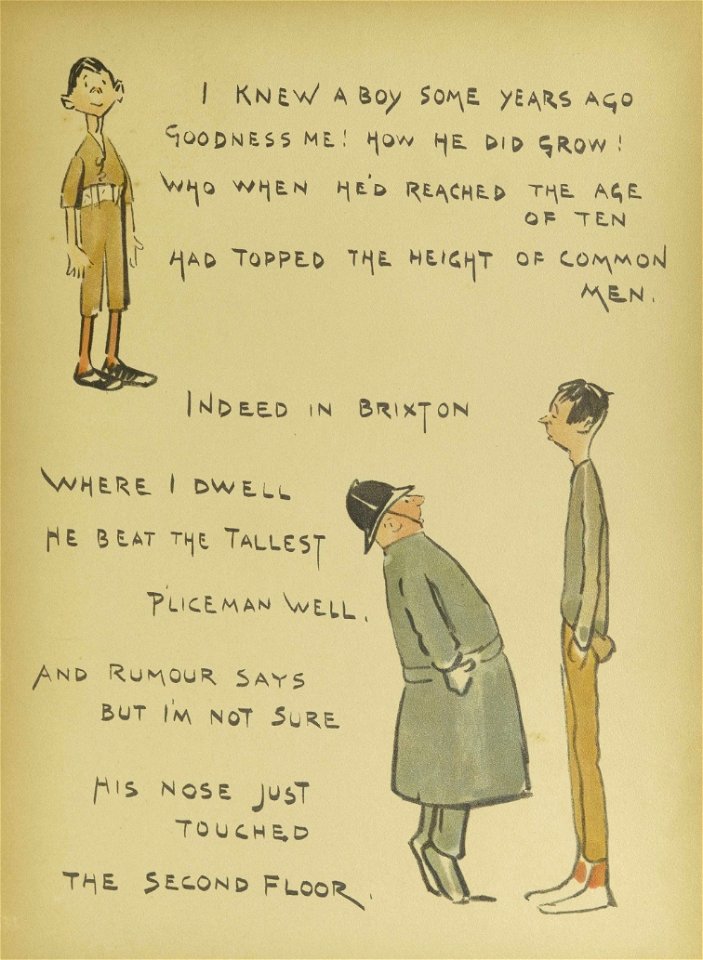 I KNEW A BOY SOME YEARS AGO
GOODNESS ME! HOW HE DID GROW!
WHO WHEN HE'D REACHED THE AGE
OF TEN
HAD TOPPED THE HEIGHT OF COMMON
MEN.
INDEED IN BRIXTON
WHERE I DWELL
HE BEAT THE TALLEST
P'LICEMAN WELL.
AND RUMOUR SAYS
BUT I'M NOT SURE
HIS NOSE JUST
TOUCHED
THE SECOND FLOOR.